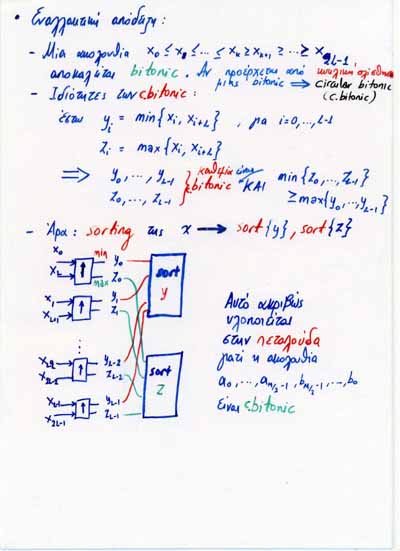 • Εναλλακτική απόδειξη:
- Μια ακολουθία x₀ ≤ x₁ ≤ ... ≤ xₖ ≥ xₖ₊₁ ≥ ... ≥ x₂L₋₁,
αποκαλείται bitonic. Αν προέρχεται από κυκλική ολίσθηση
μιας bitonic ⟹ circular bitonic
(c.bitonic)
- Ιδιότητες των c.bitonic:
έστω yᵢ = min{xᵢ, xᵢ₊L}, για i=0,...,L-1
zᵢ = max{xᵢ, xᵢ₊L}
⟹ y₀, ..., yL₋₁ } καθεμία είναι
z₀, ..., zL₋₁ } c.bitonic ΚΑΙ min{z₀,...,zL₋₁}
≥ max{y₀,...,yL₋₁}
- Άρα: sorting της x ⟶ sort{y}, sort{z}
x₀ min y₀
xL max z₀
sort y
x₁ y₁
xL₊₁ z₁
⋮
yL₋₂
zL₋₂
sort z
xL₋₁ yL₋₁
x₂L₋₁ zL₋₁
Αυτό ακριβώς
υλοποιείται
στην πεταλούδα
γιατί η ακολουθία
a₀, ..., aₙ/₂₋₁, bₙ/₂₋₁, ..., b₀
είναι c.bitonic